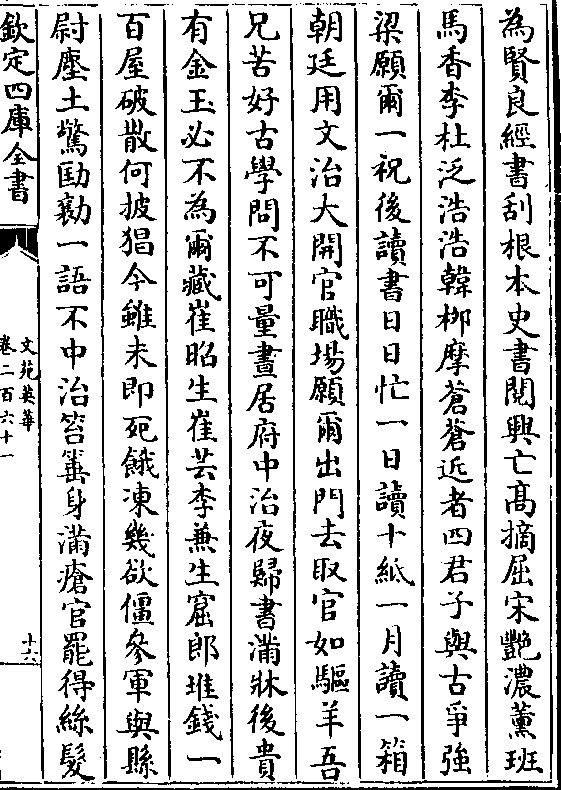 為賢良經書刮根本史書閱興亡髙摘屈宋艷濃薰班
馬香李杜泛浩浩韓栁摩蒼蒼近者四君子與古爭強
梁願爾一祝後讀書日日忙一日讀十紙一月讀一箱
朝廷用文治大開官職場願爾出門去取官如驅羊吾
兄苦好古學問不可量晝居府中治夜歸書滿牀後貴
有金玉必不為爾藏崔昭生崔芸李兼生窟郎堆錢一
百屋破散何披猖今雖未即死餓凍幾欲僵參軍與縣
尉塵土驚劻勷一語不中治笞箠身滿瘡官罷得絲髮
欽定四庫全書
文苑英華
卷二百六十一
十六